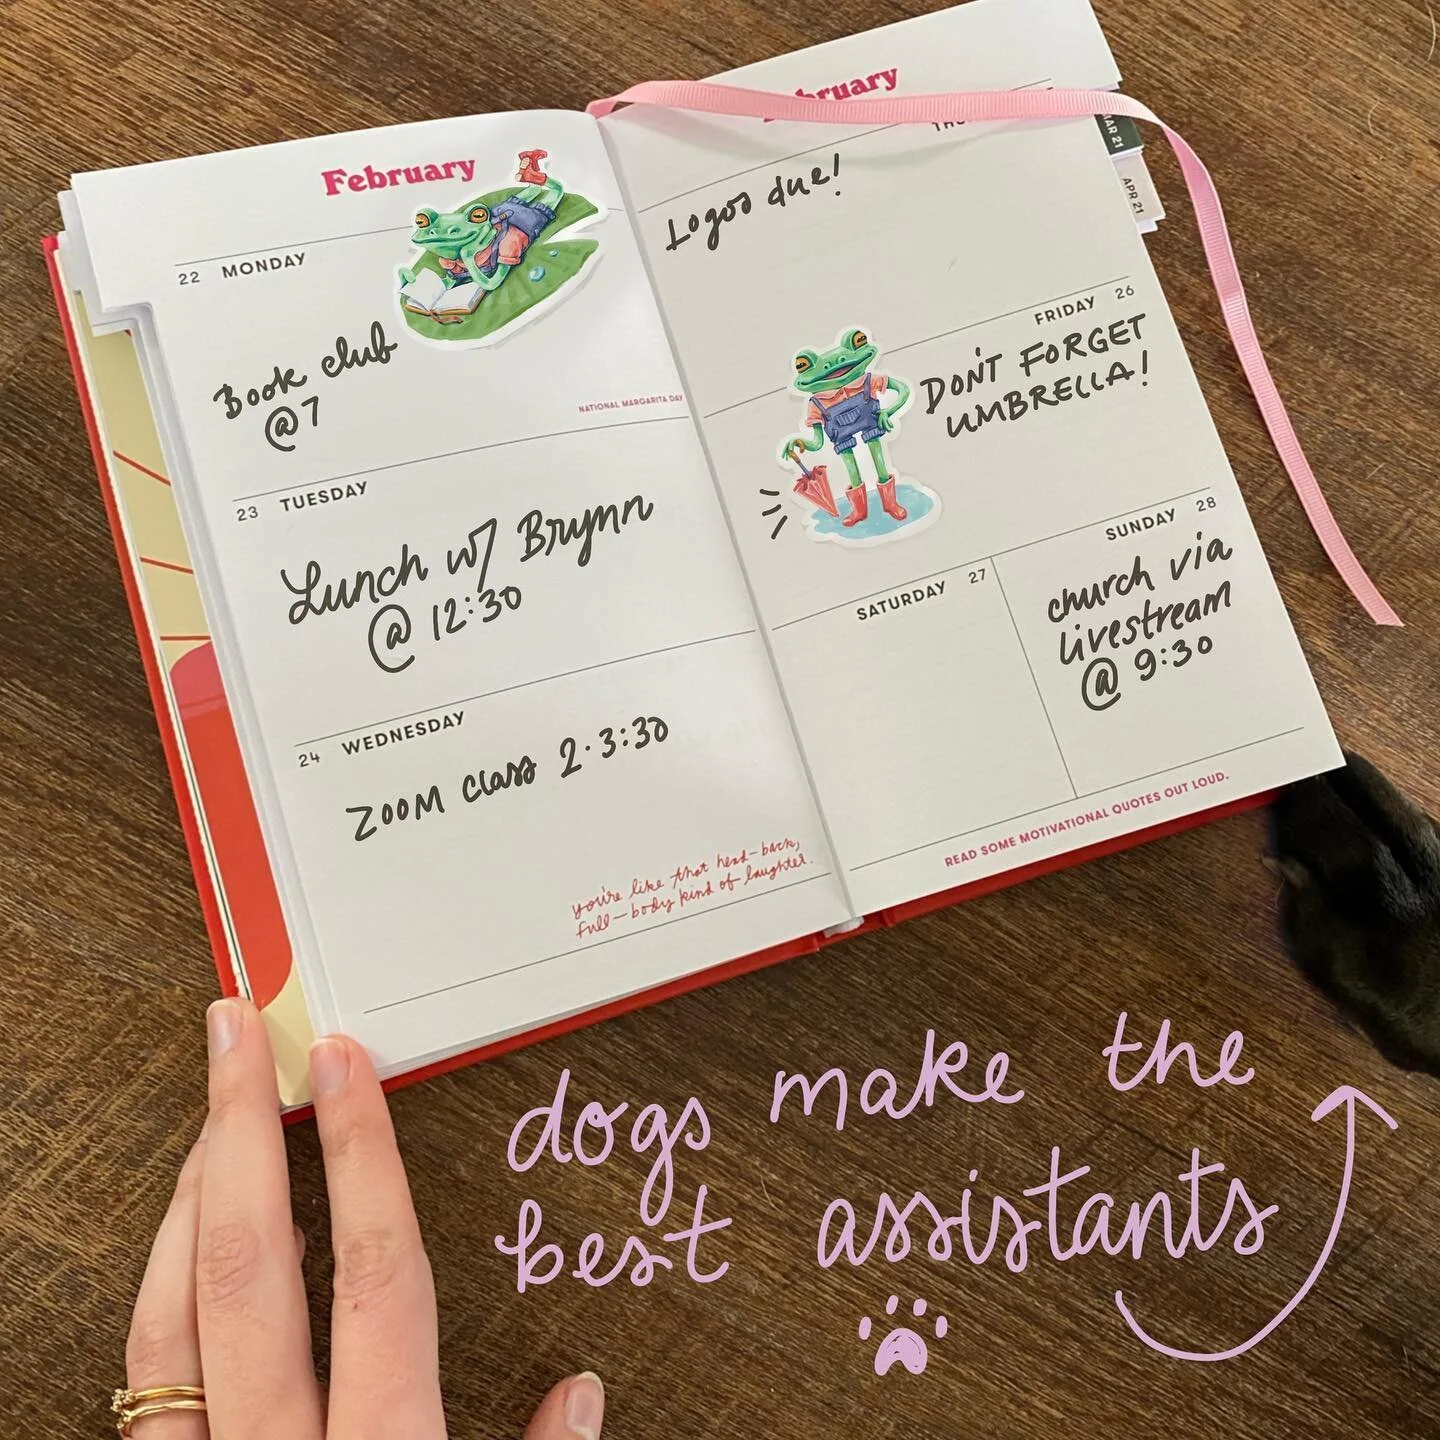 February
22 MONDAY
Book club
@7
NATIONAL MARGARITA DAY
23 TUESDAY
Lunch w/ Brynn
@ 12:30
24 WEDNESDAY
ZOOM class 2-3:30
you're like that head-back,
full-body kind of laughter.
Logos due!
FRIDAY 26
DON'T FORGET
UMBRELLA!
SATURDAY 27
SUNDAY 28
church via
livestream
@ 9:30
READ SOME MOTIVATIONAL QUOTES OUT LOUD.
MAR 21
APR 21
dogs make the
best assistants